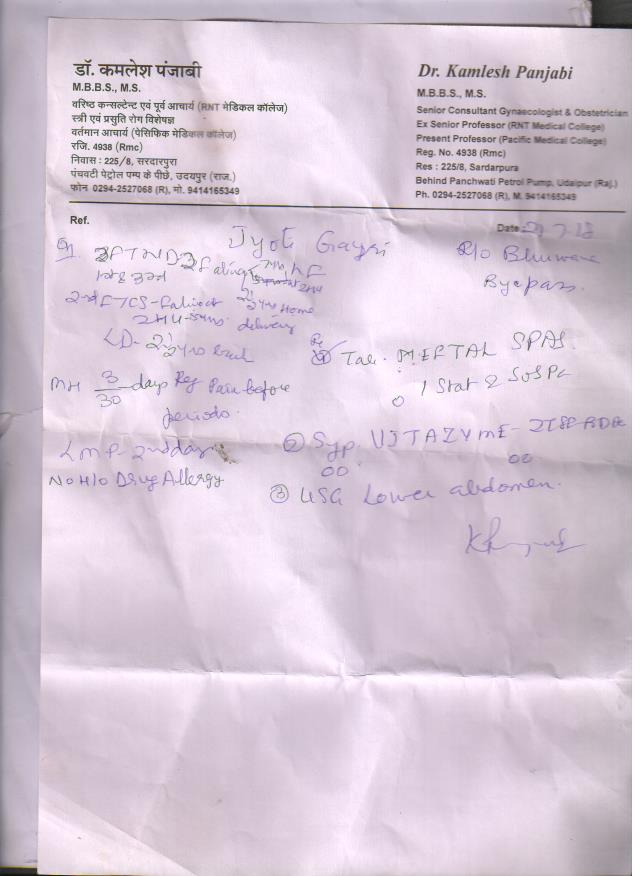 डॉ. कमलेश पंजाबी
M.B.B.S., M.S.
वरिष्ठ कन्सल्टेन्ट एवं पूर्व आचार्य (RNT मेडिकल कॉलेज)
स्त्री एवं प्रसुति रोग विशेषज्ञ
वर्तमान आचार्य (पेसिफिक मेडिकल कॉलेज)
रजि. 4938 (Rmc)
निवास : 225/8, सरदारपुरा
पंचवटी पेट्रोल पम्प के पीछे, उदयपुर (राज.)
फोन 0294-2527068 (R), मो. 9414165349
Dr. Kamlesh Panjabi
M.B.B.S., M.S.
Senior Consultant Gynaecologist & Obstetrician
Ex Senior Professor (RNT Medical College)
Present Professor (Pacific Medical College)
Reg. No. 4938 (Rmc)
Res : 225/8, Sardarpura
Behind Panchwati Petrol Pump, Udaipur (Raj.)
Ph. 0294-2527068 (R), M. 9414165349
Ref.
Date
Jyoti
R/o Bhuwana
Byepass
Home
delivery
LD- 2½ yrs back
MH 3/30 days Reg Pain before
periods.
LMP- 2nd day
No H/o Drug Allergy
Rx
① Tab. MEFTAL SPAS
1 Stat & SOS
② Syp. VITAZYME- 2TSP
③ USG Lower abdomen.